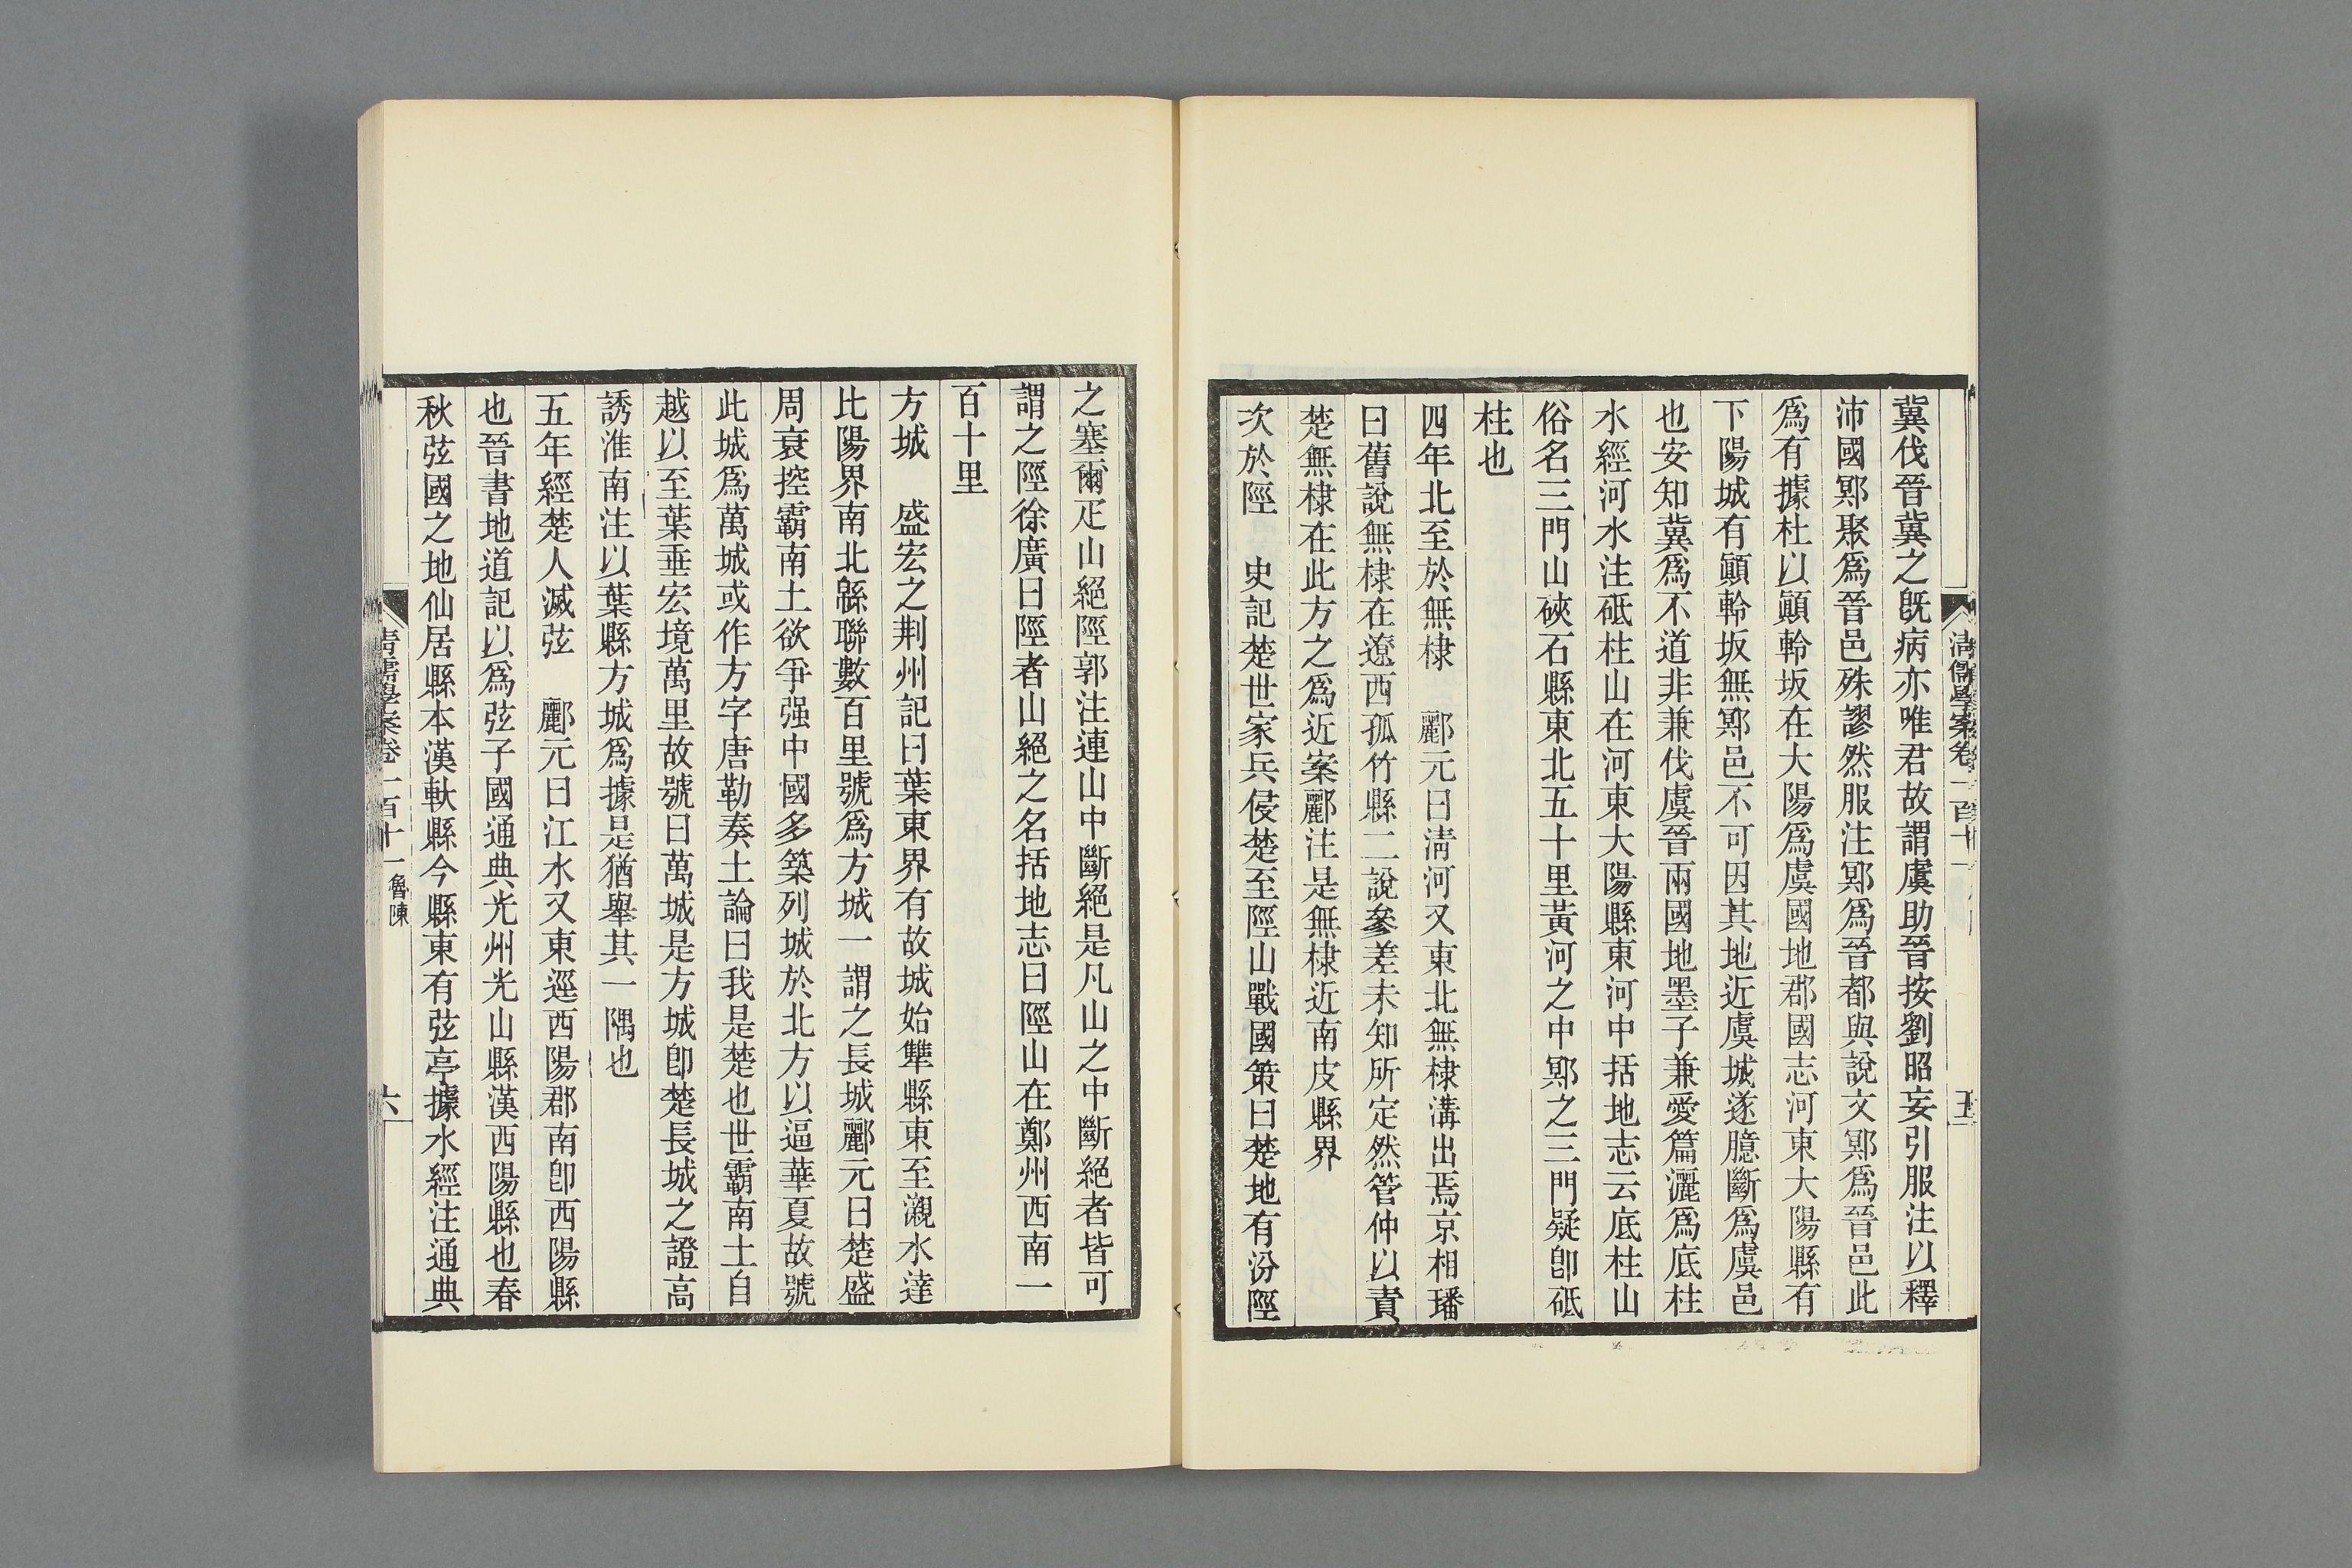 清儒學案卷一百十一
五
冀伐晉冀之旣病亦唯君故謂虞助晉按劉昭妄引服注以釋
沛國鄍聚爲晉邑殊謬然服注鄍爲晉都與說文鄍爲晉邑此
爲有據杜以顚軨坂在大陽爲虞國地郡國志河東大陽縣有
下陽城有顚軨坂無鄍邑不可因其地近虞城遂臆斷爲虞邑
也安知冀爲不道非兼伐虞晉兩國地墨子兼愛篇灑爲底柱
水經河水注砥柱山在河東大陽縣東河中括地志云底柱山
俗名三門山硤石縣東北五十里黃河之中鄍之三門疑卽砥
柱也
四年北至於無棣　酈元曰淸河又東北無棣溝出焉京相璠
曰舊說無棣在遼西孤竹縣二說參差未知所定然管仲以責
楚無棣在此方之爲近案酈注是無棣近南皮縣界
次於陘　史記楚世家兵侵楚至陘山戰國策曰楚地有汾陘
之塞爾疋山絕陘郭注連山中斷絕是凡山之中斷絕者皆可
謂之陘徐廣曰陘者山絕之名括地志曰陘山在鄭州西南一
百十里
方城　盛宏之荆州記曰葉東界有故城始犨縣東至瀙水達
比陽界南北緜聯數百里號爲方城一謂之長城酈元曰楚盛
周衰控霸南土欲爭强中國多築列城於北方以逼華夏故號
此城爲萬城或作方字唐勒奏土論曰我是楚也世霸南土自
越以至葉垂宏境萬里故號曰萬城是方城卽楚長城之證高
誘淮南注以葉縣方城爲據是猶舉其一隅也
五年經楚人滅弦　酈元曰江水又東逕西陽郡南卽西陽縣
也晉書地道記以爲弦子國通典光州光山縣漢西陽縣也春
秋弦國之地仙居縣本漢軑縣今縣東有弦亭據水經注通典
清儒學案卷一百十一 魯陳
六